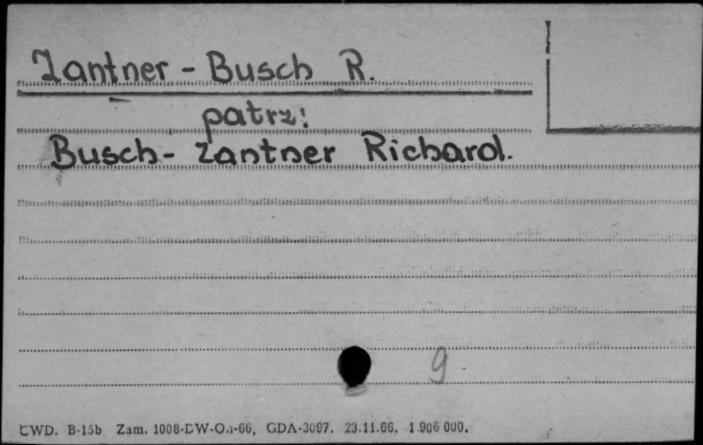 Zantner - Busch R.
patrz:
Busch - Zantner Richard.
9
CWD. B-15b Zam. 1008-DW-Oa-66, GDA-3097. 23.11.66. 1 906 000.